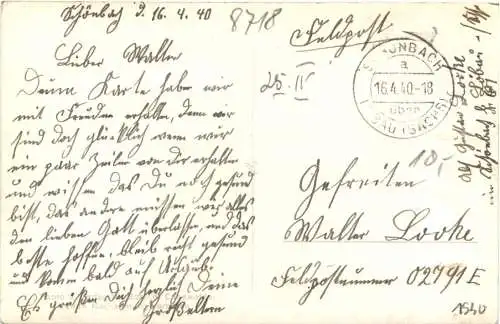 Schönbach d. 16.4.40
8718
Feldpost
25. IV
SCHÖNBACH
a
16.4.40-18
über
LÖBAU (SACHS)
Lieber Walter
Deine Karte haben wir
mit Freuden erhalten, denn wir
sind doch glücklich wenn wir
ein paar Zeilen von Dir erhalten
und wissen das Du noch gesund
bist, das andre müssen wir alles
den lieben Gott überlassen, und das
beste hoffen, bleib recht gesund
und komm bald auf Urlaub.
Es grüßen Dich herzlich Deine
Großeltern
10,-
Gefreiten
Walter Looke
Feldpostnummer 02791 E
1540
Abs. Gustav Looke
Schönbach
Löbau